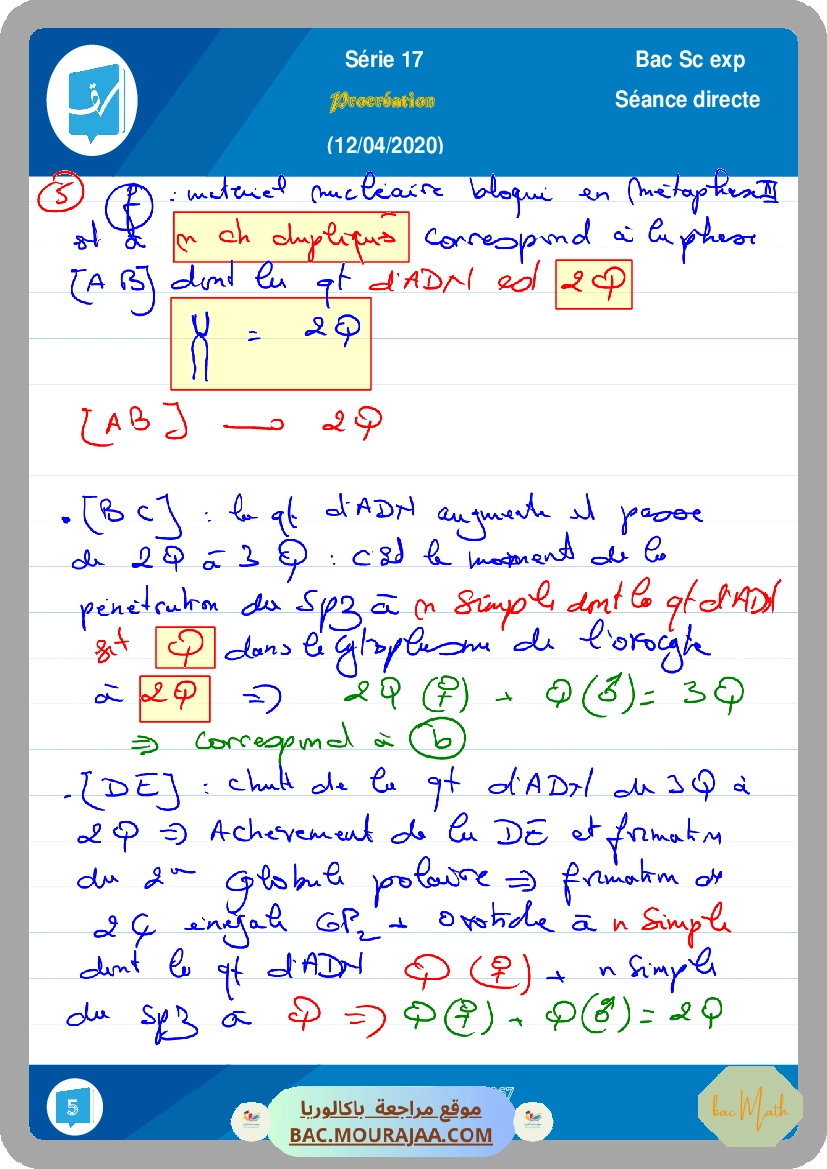 Série 17
Procréation
(12/04/2020)
Bac Sc exp
Séance directe
5 f : materiel nucléaire bloqui en MétaphaseII
st à n ch dupliqués correspond à la phase
[AB] dont la qt d'ADN est 2Q
= 2Q
[AB] — 2Q
. [BC] : la qt d'ADN augmente et passe
de 2Q à 3Q : c'est le moment de la
pénétration du SpZ à n Simple dont la qt d'ADN
est Q dans le cytoplasme de l'ovocyte
à 2Q => 2Q (♀) + Q (♂) = 3Q
=> correspond à b
. [DE] : chute de la qt d'ADN de 3Q à
2Q => Achèvement de la DE et formation
du 2em globule polaire => formation de
2 ç inégale GP2 + ovotide à n Simple
dont la qt d'ADN Q (♀) + n simple
du SpZ à Q => Q(♀) + Q(♂) = 2Q
5
موقع مراجعة باكالوريا
BAC.MOURAJAA.COM
bac Math